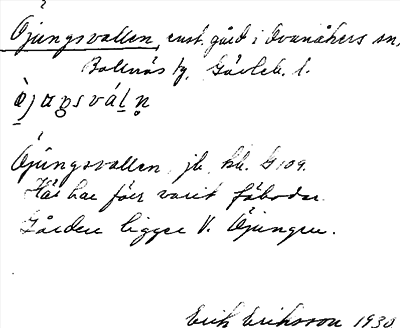 Öjungsvallen, enst. gård i Ovanåkers sn,
Bollnäs tg, Gävleb. l.
Öjungsvallen, jb, hk. G109.
Här har förr varit fäbodar.
Gården ligger V. Öjungen.
Erik Eriksson 1930